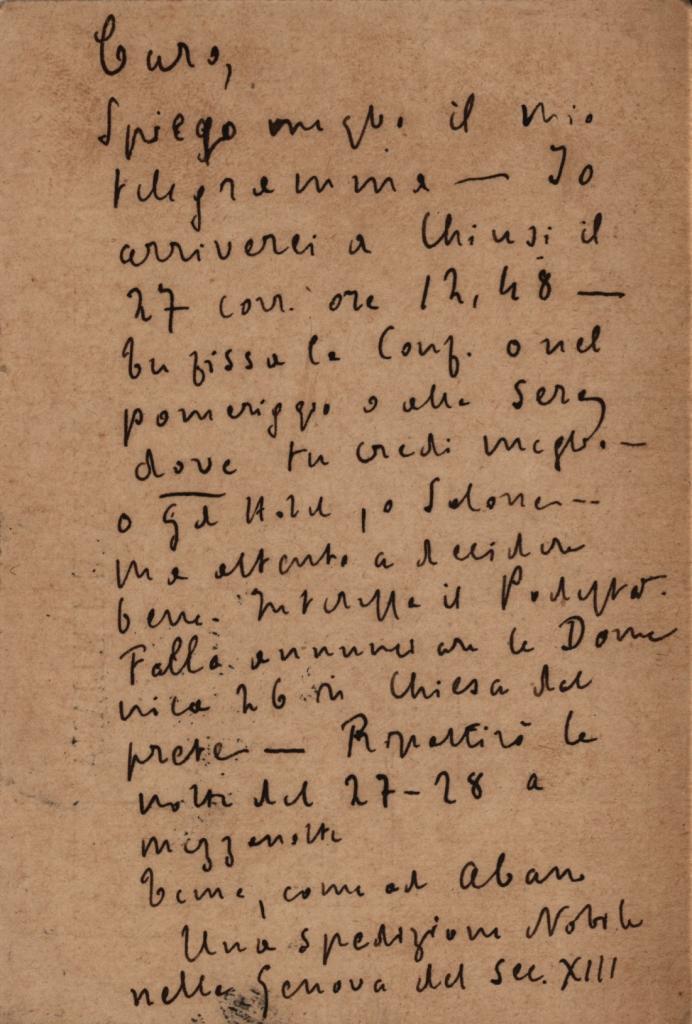 Caro,
Spiego meglio il mio
telegramma — Io
arriverei a Chiusi il
27 corr. ore 12,48 —
tu fissa la Conf. o nel
pomeriggio o alla sera,
dove tu credi meglio. —
o Gd Hotel, o Salone —
Ma attento a decidere
bene. Interessa il Podestà.
Falla annunciare la Dome
nica 26 in Chiesa dal
prete — Ripartirò la
notte del 27-28 a
mezzanotte
Tema, come ad Abano
Una spedizione Nobile
nella Genova del sec. XIII